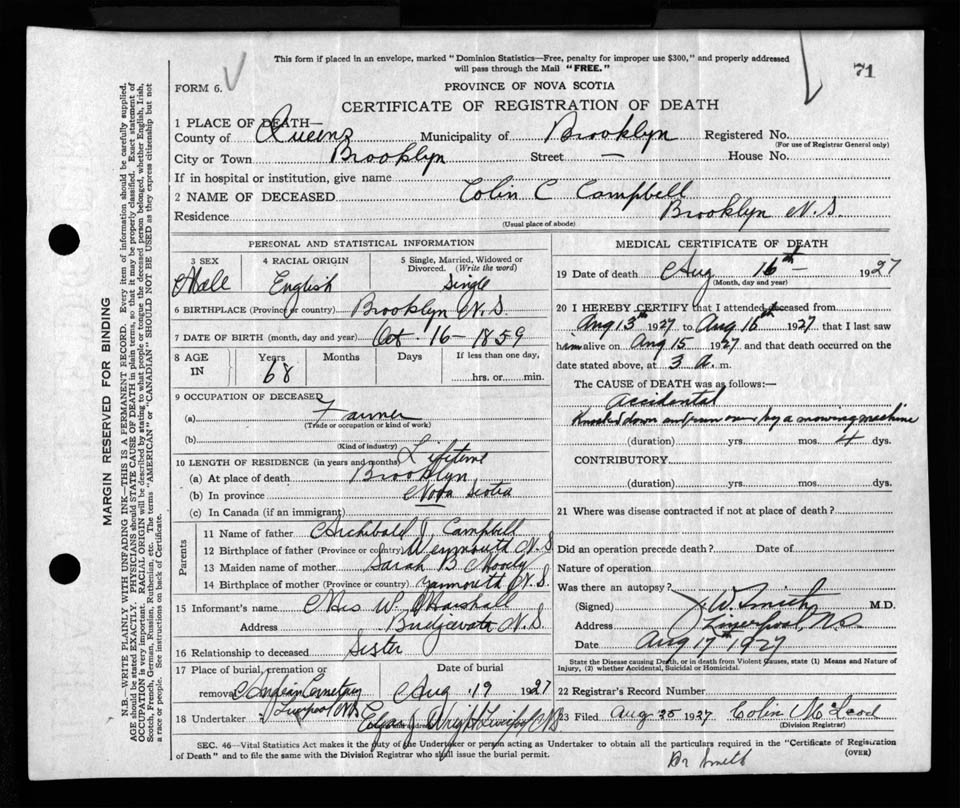 This form if placed in an envelope, marked "Dominion Statistics—Free, penalty for improper use $300," and properly addressed
will pass through the Mail "FREE."
71
FORM 6.
PROVINCE OF NOVA SCOTIA
CERTIFICATE OF REGISTRATION OF DEATH
1 PLACE OF DEATH—
County of Queens Municipality of Brooklyn Registered No.
(For use of Registrar General only)
City or Town Brooklyn Street — House No.
If in hospital or institution, give name
2 NAME OF DECEASED Colin C Campbell
Residence Brooklyn N.S
(Usual place of abode)
PERSONAL AND STATISTICAL INFORMATION
3 SEX Male
4 RACIAL ORIGIN English
5 Single, Married, Widowed or Divorced. (Write the word) Single
6 BIRTHPLACE (Province or country) Brooklyn N.S.
7 DATE OF BIRTH (month, day and year) Oct. -16-1859
8 AGE IN Years 68 Months Days If less than one day, hrs. or min.
9 OCCUPATION OF DECEASED
(a) Farmer
(Trade or occupation or kind of work)
(b)
(Kind of industry)
10 LENGTH OF RESIDENCE (in years and months) Lifetime
(a) At place of death Brooklyn
(b) In province Nova Scotia
(c) In Canada (if an immigrant)
Parents
11 Name of father Archibald J Campbell
12 Birthplace of father (Province or country) Weymouth N.S
13 Maiden name of mother Sarah B
14 Birthplace of mother (Province or country) Yarmouth N.S.
15 Informant's name Mrs W Marshall
Address N.S
16 Relationship to deceased Sister
17 Place of burial, cremation or removal Cemetery Liverpool N.S
Date of burial Aug 19 1927
18 Undertaker Edgar J Wright N.S
MEDICAL CERTIFICATE OF DEATH
19 Date of death Aug 16th — 1927
(Month, day and year)
20 I HEREBY CERTIFY that I attended deceased from
Aug 13th 1927 to Aug 16th 1927, that I last saw
him alive on Aug 15 1927 and that death occurred on the
date stated above, at 3 a. m.
The CAUSE of DEATH was as follows:—
Accidental
Knocked down and run over by a mowing machine
(duration) yrs. mos. 4 dys.
CONTRIBUTORY
(duration) yrs. mos. dys.
21 Where was disease contracted if not at place of death?
Did an operation precede death? Date of
Nature of operation
Was there an autopsy?
(Signed) J W. Smith M.D.
Address Liverpool, N.S.
Date Aug 17th 1927
State the Disease causing Death, or in death from Violent Causes, state (1) Means and Nature of
Injury, (2) whether Accidental, Suicidal or Homicidal.
22 Registrar's Record Number
23 Filed Aug 25 1927 Colin McLeod
(Division Registrar)
SEC. 46—Vital Statistics Act makes it the duty of the Undertaker or person acting as Undertaker to obtain all the particulars required in the "Certificate of Registration
of Death" and to file the same with the Division Registrar who shall issue the burial permit.
(OVER)
Dr Smith
MARGIN RESERVED FOR BINDING
N.B.—WRITE PLAINLY WITH UNFADING INK—THIS IS A PERMANENT RECORD. Every item of information should be carefully supplied.
AGE should be stated EXACTLY. PHYSICIANS should STATE CAUSE OF DEATH in plain terms, so that it may be properly classified. Exact statement of
OCCUPATION is very important. RACIAL ORIGIN will be described by stating to what people or tongue the deceased person belonged, whether English, Irish,
Scotch, French, German, Russian, Ruthenian, etc. The terms "AMERICAN" or "CANADIAN" SHOULD NOT BE USED as they express citizenship but not
a race or people. See instructions on back of Certificate.